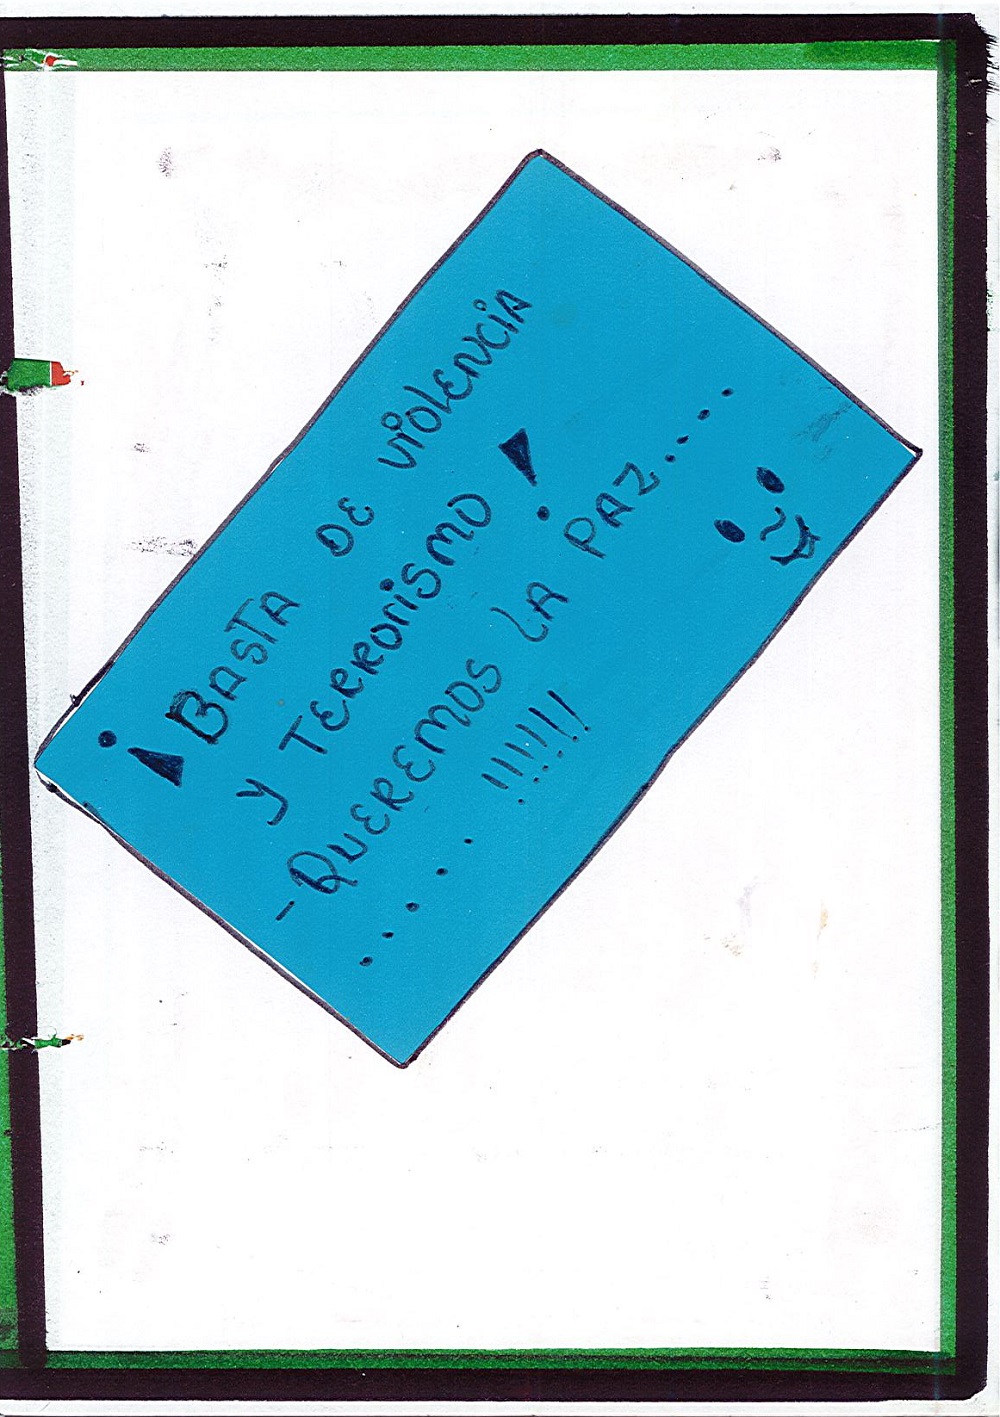 ¡BASTA DE VIOLENCIA
Y TERRORISMO!
-QUEREMOS LA PAZ.....
..... !!!!!!